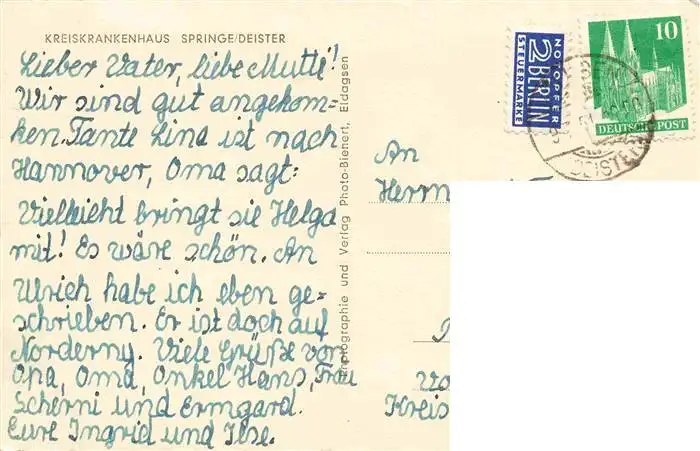 KREISKRANKENHAUS SPRINGE/DEISTER
Lieber Vater, liebe Mutti!
Wir sind gut angekom=
ken. Tante Lina ist nach
Hannover, Oma sagt:
Vielleicht bringt sie Helga
mit! Es wäre schön. An
Ulrich habe ich eben ge=
schrieben. Er ist doch auf
Norderny. Viele Grüße von
Opa, Oma, Onkel Hans, Frau
Scherni und Ermgard.
Eure Ingrid und Ilse.
Photographie und Verlag Photo-Bienert, Eldagsen
NOTOPFER
2 BERLIN
STEUERMARKE
10
DEUTSCHE POST
DEISTER
An
Herrn
Kreis